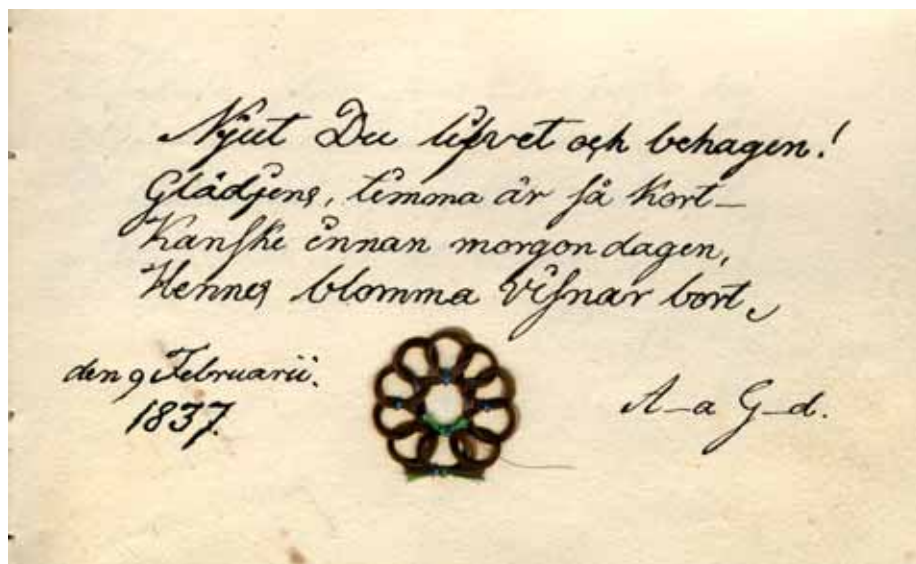 Njut Du lifvet och behagen!
Glädjens, timma är så kort_
Kanske innan morgondagen,
Hennes blomma visnar bort.
den 9 Februarii.
1837.
A_a G_d.